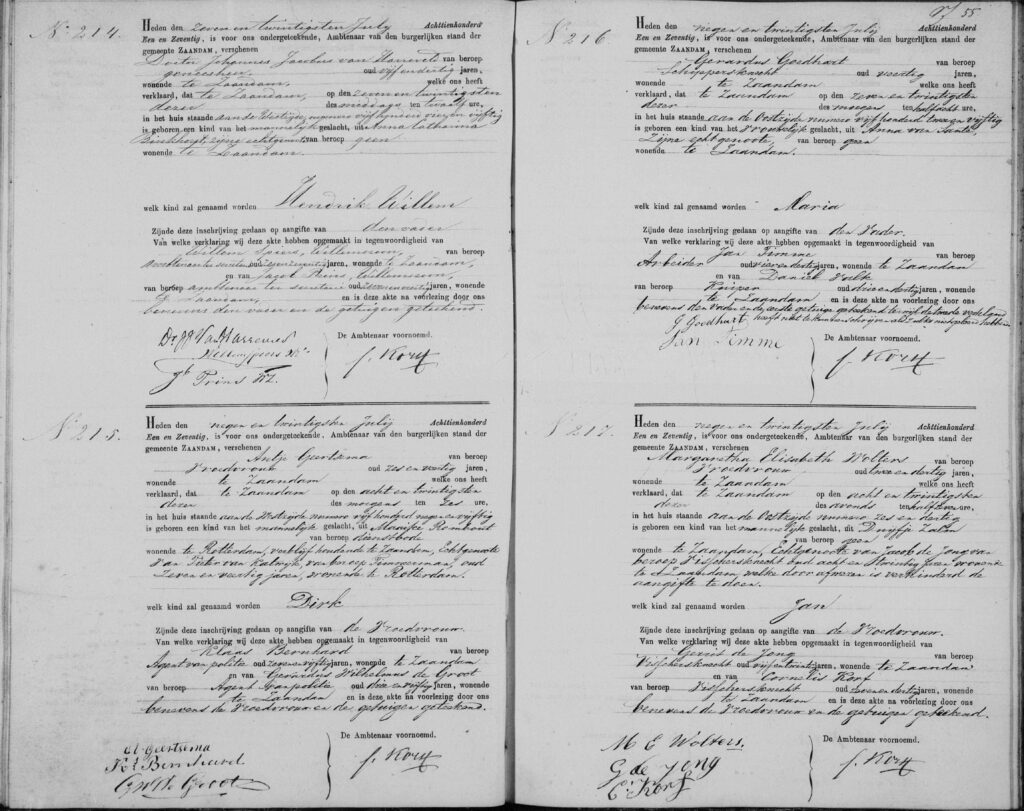 55
No 214.
Heden den zeven en twintigsten July Achttienhonderd
Een en Zeventig, is voor ons ondergeteekende, Ambtenaar van den burgerlijken stand der
gemeente ZAANDAM, verschenen
Johannes Jacobus van van beroep
geneesheer oud vijf en dertig jaren,
wonende te Zaandam, welke ons heeft
verklaard, dat te Zaandam, op den zeven en twintigsten
dezer des middags ten twaalf ure,
in het huis staande aan de Westzijde, numero vijfhonderd vijftig
is geboren een kind van het mannelijk geslacht, uit Anna Catharina
zijne echtgenoot, van beroep geen
wonende te Zaandam.
welk kind zal genaamd worden Hendrik Willem
Zijnde deze inschrijving gedaan op aangifte van den vader
Van welke verklaring wij deze akte hebben opgemaakt in tegenwoordigheid van
Willem Spiers, Willemszoon, van beroep
oud jaren, wonende te Zaandam,
en van Jacob Prins, Willemszoon,
van beroep ambtenaar ter secretarie oud jaren, wonende
te Zaandam, en is deze akte na voorlezing door ons
benevens den vader en de getuigen geteekend.
De Ambtenaar voornoemd.
Jb Prins WZ.
J. Korff
No 215.
Heden den negen en twintigsten July Achttienhonderd
Een en Zeventig, is voor ons ondergeteekende, Ambtenaar van den burgerlijken stand der
gemeente ZAANDAM, verschenen
Antje Geertsema van beroep
Vroedvrouw oud zes en veertig jaren,
wonende te Zaandam welke ons heeft
verklaard, dat te Zaandam op den acht en twintigsten
dezer des morgens ten zes ure,
in het huis staande aan de Westzijde numero vijf honderd negen en vijftig
is geboren een kind van het mannelijk geslacht, uit Maaike Rombout
van beroep dienstbode
wonende te Rotterdam, verblijfhoudende te Zaandam, Echtgenoote
van Pieter van Katwijk, van beroep Timmerman, oud
Zeven en veertig jaren, wonende te Rotterdam.
welk kind zal genaamd worden Dirk
Zijnde deze inschrijving gedaan op aangifte van de Vroedvrouw.
Van welke verklaring wij deze akte hebben opgemaakt in tegenwoordigheid van
Klaas Bernhard van beroep
Agent van politie oud zeven en vijftig jaren, wonende te Zaandam
en van Gerardus Wilhelmus de Groot
van beroep Agent van politie oud drie en vijftig jaren, wonende
te Zaandam en is deze akte na voorlezing door ons
benevens de Vroedvrouw en de getuigen geteekend.
De Ambtenaar voornoemd.
A Geertsema
Kl Bernhard
G W de Groot
J. Korff
No 216.
Heden den negen en twintigsten July Achttienhonderd
Een en Zeventig, is voor ons ondergeteekende, Ambtenaar van den burgerlijken stand der
gemeente ZAANDAM, verschenen
Gerardus Goedhart van beroep
Schippersknecht oud veertig jaren,
wonende te Zaandam welke ons heeft
verklaard, dat te Zaandam op den zeven en twintigsten
dezer des morgens ten half acht ure,
in het huis staande aan de Oostzijde numero vijf honderd twee en vijftig
is geboren een kind van het Vrouwelijk geslacht, uit Anna van Santen
Zijne echtgenoote, van beroep geen
wonende te Zaandam.
welk kind zal genaamd worden Maria
Zijnde deze inschrijving gedaan op aangifte van den Vader.
Van welke verklaring wij deze akte hebben opgemaakt in tegenwoordigheid van
Jan Timme van beroep
Arbeider oud vier en dertig jaren, wonende te Zaandam
en van Daniel Valk
van beroep Kuiper oud drie en dertig jaren, wonende
te Zaandam en is deze akte na voorlezing door ons
benevens den vader en de eerste getuige geteekend terwijl de tweede
G Goedhart
Jan Timme
De Ambtenaar voornoemd.
J. Korff
No 217.
Heden den negen en twintigsten July Achttienhonderd
Een en Zeventig, is voor ons ondergeteekende, Ambtenaar van den burgerlijken stand der
gemeente ZAANDAM, verschenen
Margaretha Elisabeth Wolters van beroep
Vroedvrouw oud twee en dertig jaren,
wonende te Zaandam welke ons heeft
verklaard, dat te Zaandam op den acht en twintigsten
dezer des avonds ten half tien ure,
in het huis staande aan de Oostzijde numero zes en dertig
is geboren een kind van het mannelijk geslacht, uit Duifje Zalm
van beroep geen
wonende te Zaandam, Echtgenoote van Jacob de Jong van
beroep Visschersknecht oud acht en twintig jaren wonende
te Zaandam, welke door afwezen is verhinderd de
aangifte te doen.
welk kind zal genaamd worden Jan
Zijnde deze inschrijving gedaan op aangifte van de Vroedvrouw.
Van welke verklaring wij deze akte hebben opgemaakt in tegenwoordigheid van
Gerrit de Jong van beroep
Visschersknecht oud vijf en twintig jaren, wonende te Zaandam
en van Cornelis Korf
van beroep Visschersknecht oud zeven en dertig jaren, wonende
te Zaandam en is deze akte na voorlezing door ons
benevens de Vroedvrouw en de getuigen geteekend.
De Ambtenaar voornoemd.
M E Wolters.
G de Jong
C. Korf
J. Korff